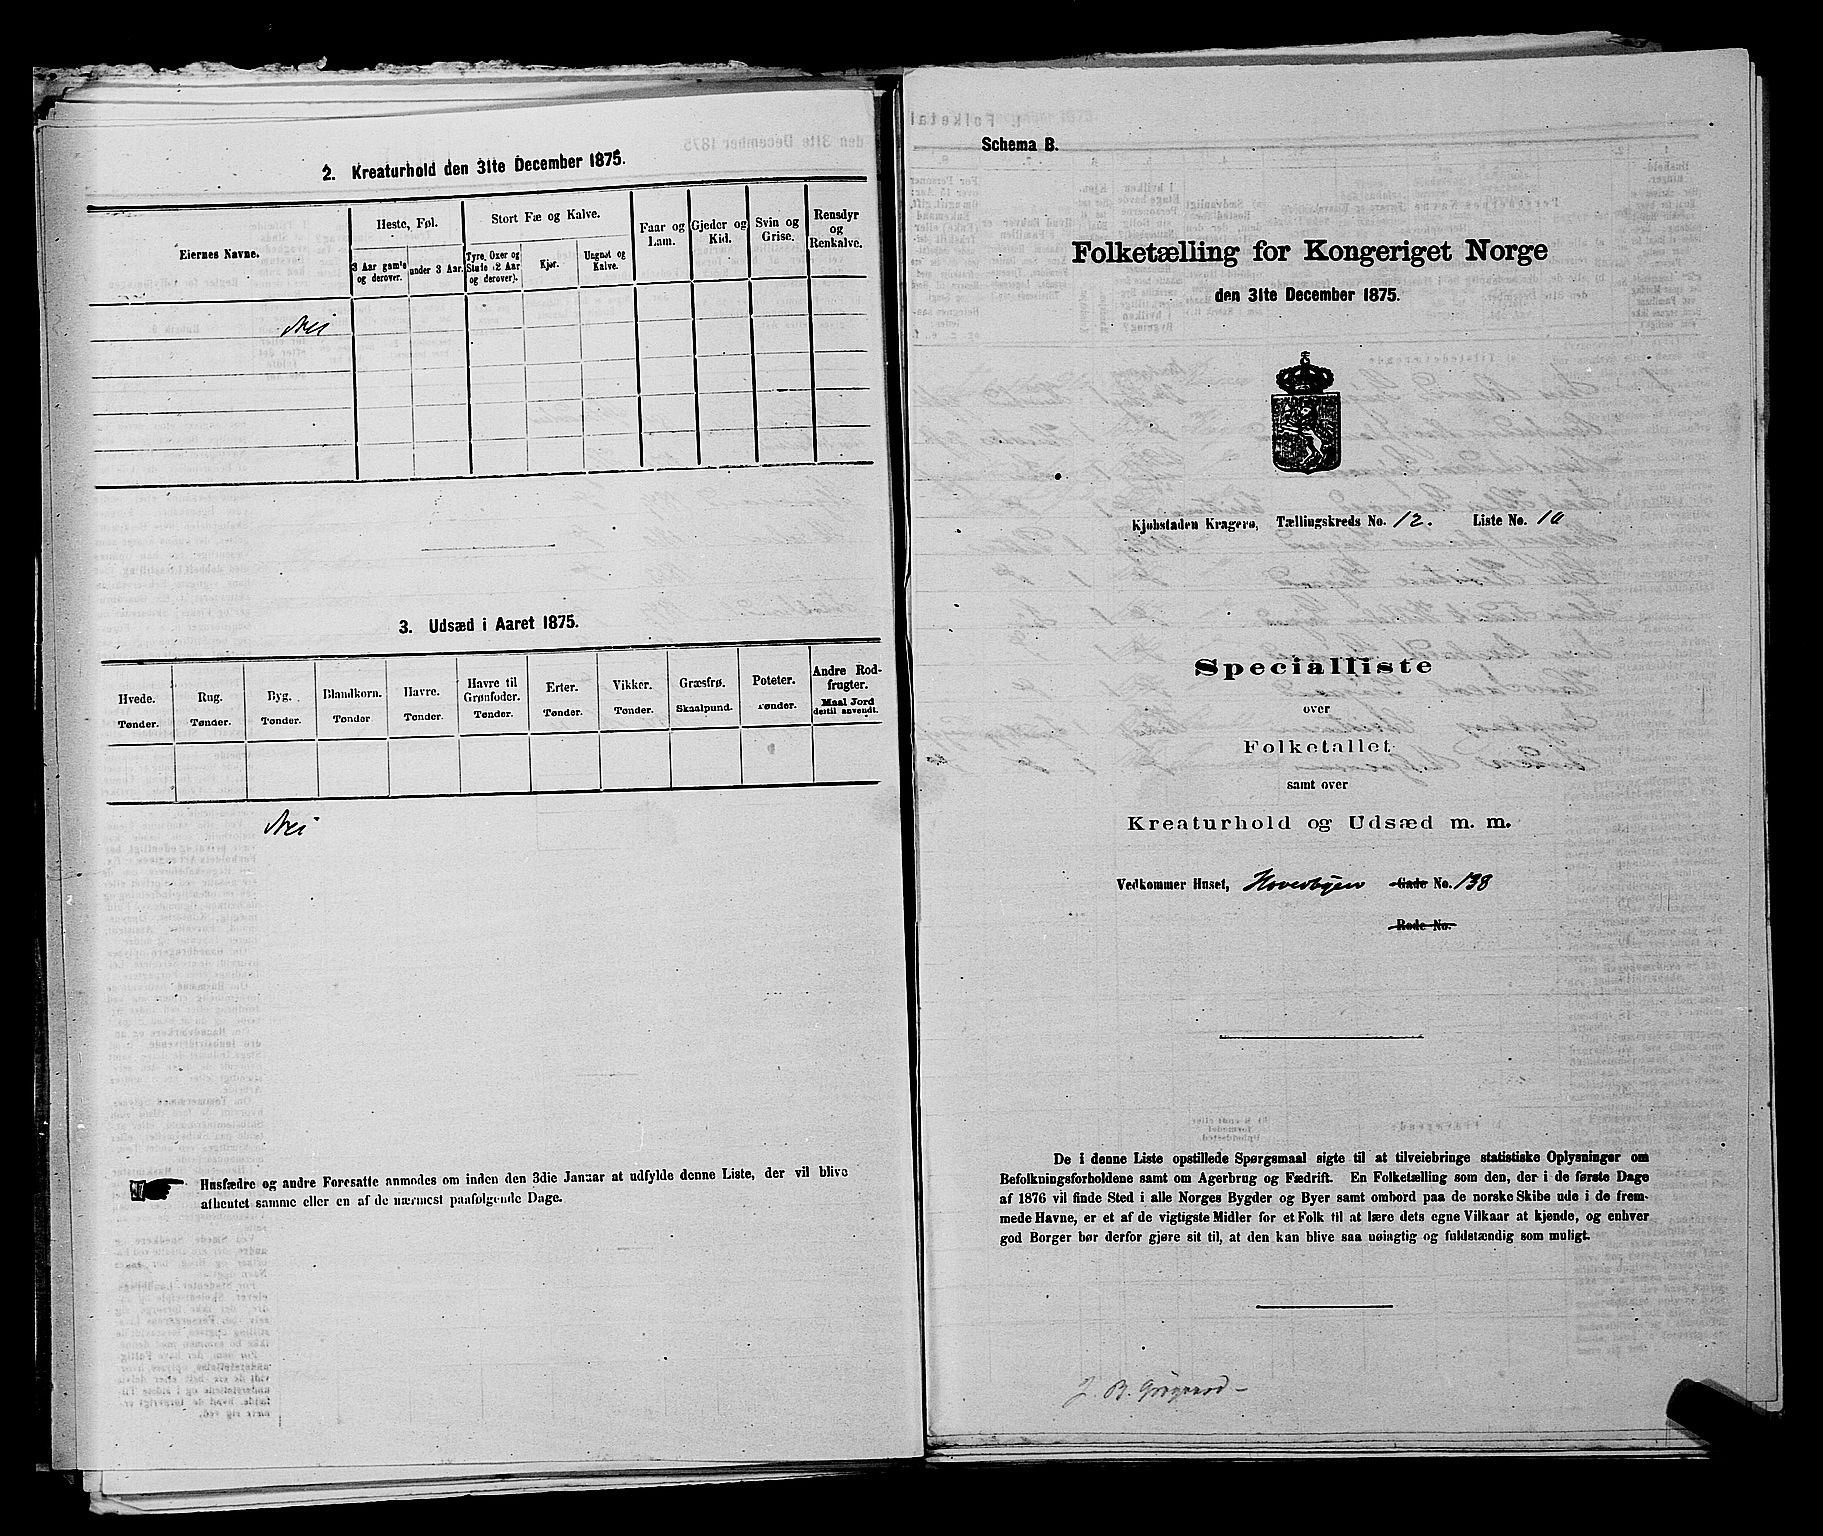 2. Kreaturhold den 31te December 1875.
Eiernes Navne.
Heste, Føl.
Stort Fæ og Kalve.
Faar og Lam.
Gjeder og Kid.
Svin og Grise.
Rensdyr og Renkalve.
3 Aar gam's og derover.
under 3 Aar.
Tyre, Oxer og Stude (2 Aar og derover).
Kjør.
Ungnøt og Kalve.
Nei
3. Udsæd i Aaret 1875.
Hvede. Tønder.
Rug. Tønder.
Byg. Tønder.
Blandkorn. Tønder
Havre. Tønder.
Havre til Grønfoder. Tønder.
Erter. Tønder.
Vikker. Tønder.
Græsfrø. Skaalpund.
Poteter. Tønder.
Andre Rodfrugter. Maal Jord dertil anvendt.
Nei
Husfædre og andre Foresatte anmodes om inden den 3die Januar at udfylde denne Liste, der vil blive
afhentet samme eller en af de nærmest paafølgende Dage.
Schema B.
Folketælling for Kongeriget Norge
den 31te December 1875.
Kjøbstaden Kragerø, Tællingskreds No. 12. Liste No. 10
Specialliste
over
Folketallet
samt over
Kreaturhold og Udsæd m. m.
Vedkommer Huset, Hovedbyen Gade No. 138
Rode No.
De i denne Liste opstillede Spørgsmaal sigte til at tilveiebringe statistiske Oplysninger om
Befolkningsforholdene samt om Agerbrug og Fædrift. En Folketælling som den, der i de første Dage
af 1876 vil finde Sted i alle Norges Bygder og Byer samt ombord paa de norske Skibe ude i de frem-
mede Havne, er et af de vigtigste Midler for et Folk til at lære dets egne Vilkaar at kjende, og enhver
god Borger bør derfor gjøre sit til, at den kan blive saa nøiagtig og fuldstændig som muligt.
J. B.